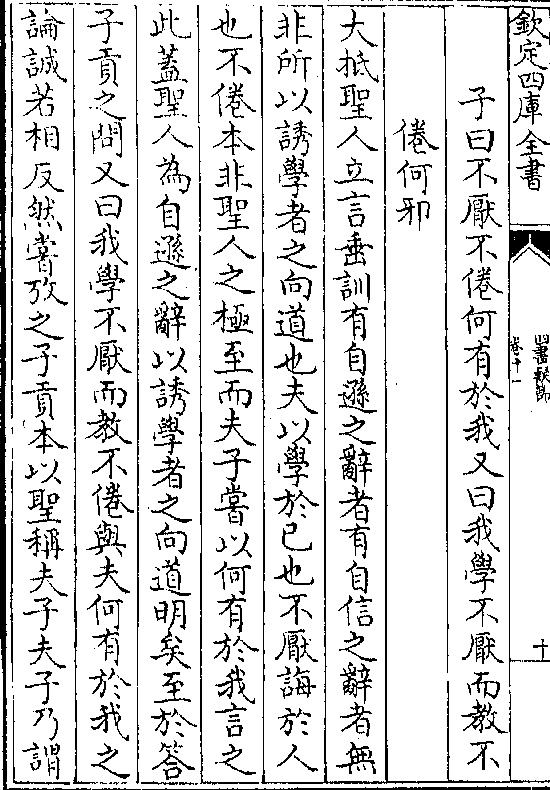 欽定四庫全書
四書疑節
卷十一
十
子曰不厭不倦何有於我又曰我學不厭而教不
倦何邪
大抵聖人立言垂訓有自遜之辭者有自信之辭者無
非所以誘學者之向道也夫以學於已也不厭誨於人
也不倦本非聖人之極至而夫子嘗以何有於我言之
此蓋聖人為自遜之辭以誘學者之向道明矣至於答
子貢之問又曰我學不厭而教不倦與夫何有於我之
論誠若相反然嘗攷之子貢本以聖稱夫子夫子乃謂